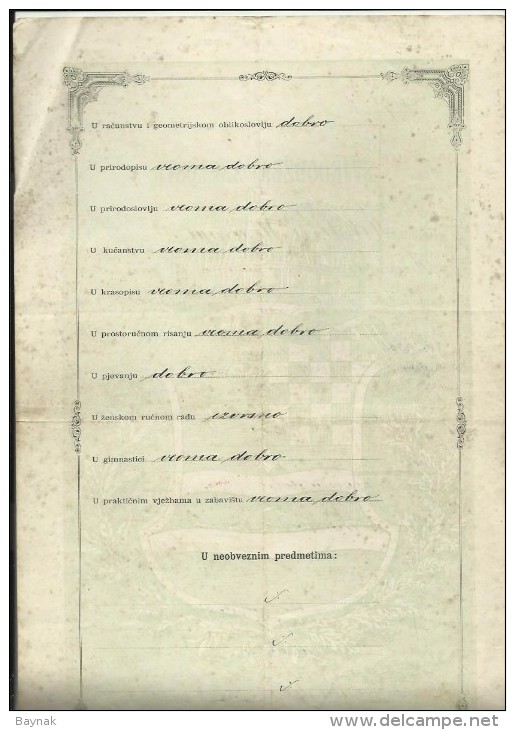 U računstvu i geometrijskom oblikosloviju dobro
U prirodopisu veoma dobro
U prirodosloviju veoma dobro
U kućanstvu veoma dobro
U krasopisu veoma dobro
U prostoručnom risanju veoma dobro
U pjevanju dobro
U ženskom ručnom radu izvrsno
U gimnastici veoma dobro
U praktičnim vježbama u zabavištu veoma dobro
U neobveznim predmetima:
Baynak
www.delcampe.net